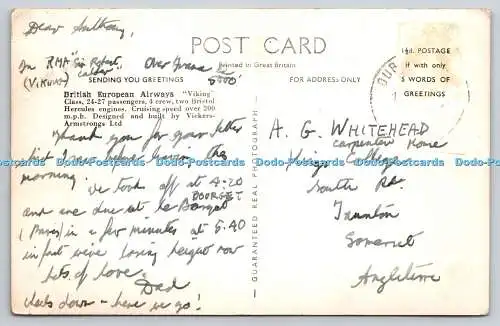 Dear Anthony,
In RMA "Sir Robert
Calder"
(VIKING)
Over France
5000'
POST CARD
Printed in Great Britain
SENDING YOU GREETINGS
FOR ADDRESS ONLY
½d. POSTAGE
if with only
5 WORDS OF
GREETINGS
British European Airways "Viking"
Class, 24-27 passengers, 4 crew, two Bristol
Hercules engines. Cruising speed over 200
m.p.h. Designed and built by Vickers-
Armstrongs Ltd
Thank you for your letter
just before leaving the
morning. We took off at 4.20
BOURGET
and are due at Le Bourget
(Paris) in a few minutes at 5.40
in fact we're losing height now
Lots of love,
Dad
wheels down - here we go!
GUARANTEED REAL PHOTOGRAPH
A. G. WHITEHEAD
Carpenter House
Kings College
South Rd.
Taunton
Somerset
Angleterre
www.hippostcard.com